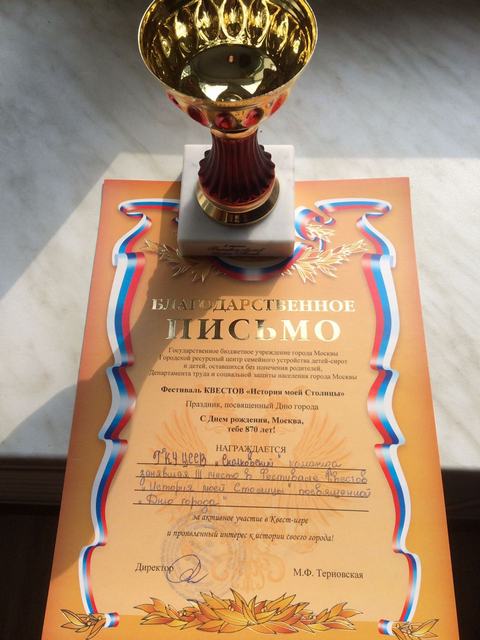 БЛАГОДАРСТВЕННОЕ
ПИСЬМО
Государственное бюджетное учреждение города Москвы
Городской ресурсный центр семейного устройства детей-сирот
и детей, оставшихся без попечения родителей,
Департамента труда и социальной защиты населения города Москвы
Фестиваль КВЕСТОВ «История моей Столицы»
Праздник, посвященный Дню города
С Днем рождения, Москва,
тебе 870 лет!
НАГРАЖДАЕТСЯ
ГКУ ЦССВ „Скалковский" команда
занявшая III место в Фестивале Квестов
„История моей Столицы" посвященной
„Дню города"
за активное участие в Квест-игре
и проявленный интерес к истории своего города!
Директор
М.Ф. Терновская